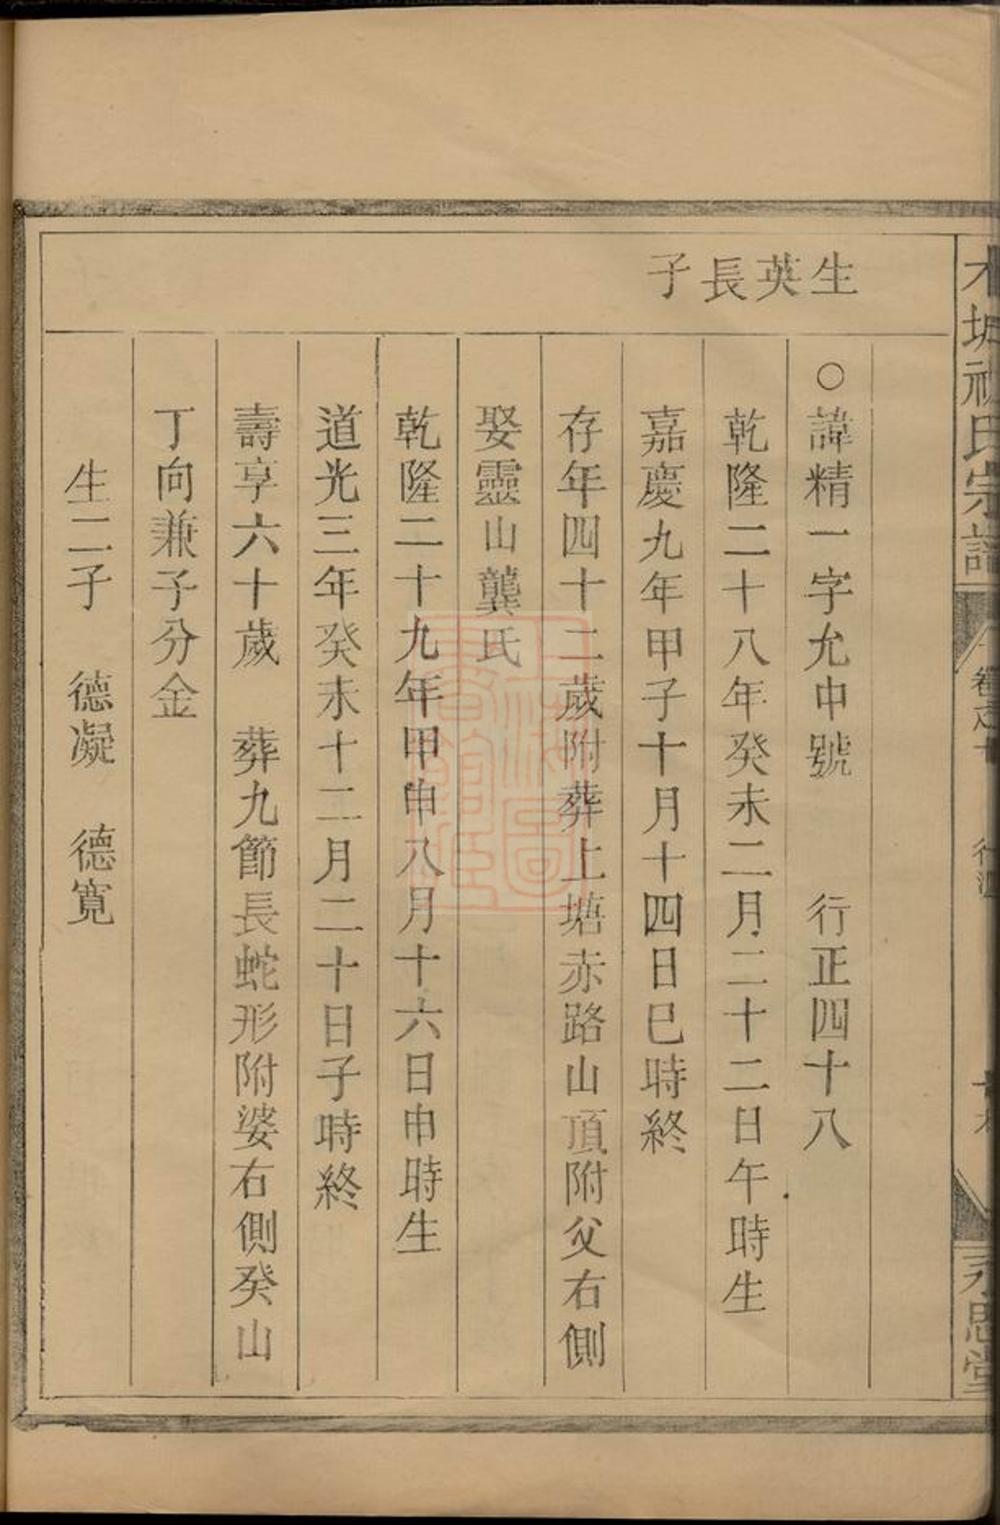 城祝氏宗譜
永思堂
生英長子
○諱精一字允中號　行正四十八
乾隆二十八年癸未二月二十二日午時生
嘉慶九年甲子十月十四日巳時終
存年四十二歲附葬上塘赤路山頂附父右側
娶靈山龔氏
乾隆二十九年甲申八月十六日申時生
道光三年癸未十二月二十日子時終
壽享六十歲　葬九節長蛇形附婆右側癸山
丁向兼子分金
生二子　德凝　德寬